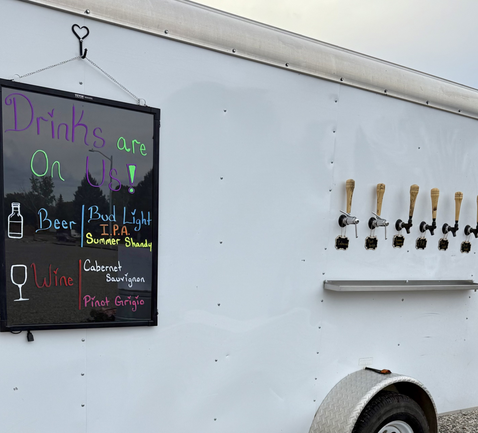 Drinks are
On Us!
Beer
Bud Light
I.P.A
Summer Shandy
Wine
Cabernet
Sauvignon
Pinot Grigio